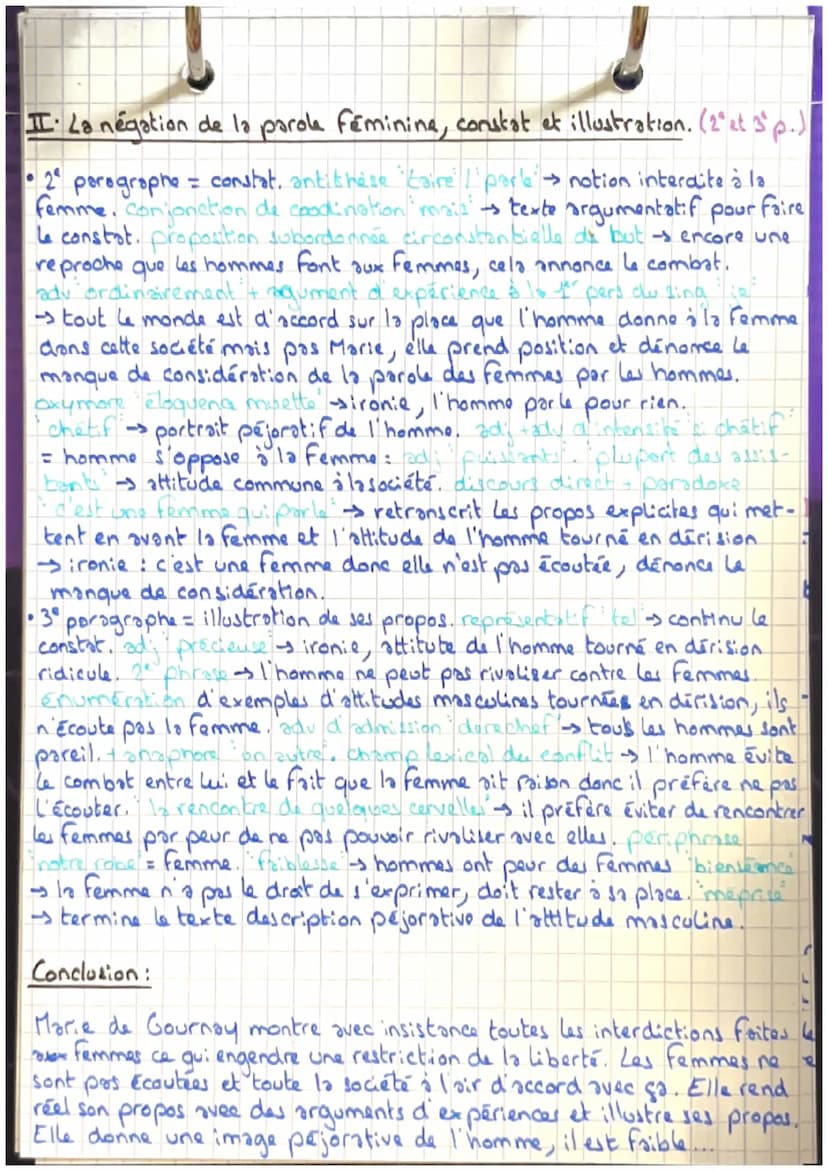 II. La négation de la parole féminine, constat et illustration. (2e et 3e p.)
• 2e paragraphe = constat. antithèse "taire / parle" → notion interdite à la
femme. conjonction de coodination "mais" → texte argumentatif pour faire
le constat. proposition subordonnée circonstantielle de but → encore une
reproche que les hommes font aux femmes, cela annonce le combat.
adv "ordinairement" + agument d'expérience à la 1ère pers du sing "je"
→ tout le monde est d'accord sur la place que l'homme donne à la femme
dans cette société mais pas Marie, elle prend position et dénonce le
manque de considération de la parole des femmes par les hommes.
oxymore "éloquence muette" → ironie, l'homme parle pour rien.
"chétif" → portrait péjoratif de l'homme. adj + adv d'intensité "si chétif"
= homme s'oppose à la femme : adj "puissants". "plupart des assis-
tants" → attitude commune à la société. discours direct + paradoxe
"c'est une femme qui parle" → retranscrit les propos explicites qui met-
tent en avant la femme et l'attitude de l'homme tourné en dérision
→ ironie : c'est une femme donc elle n'est pas écoutée, dénonce le
manque de considération.
• 3e paragraphe = illustration de ses propos. représentatif "tel" → continu le
constat. adj "précieuse" → ironie, attitute de l'homme tourné en dérision
ridicule. 2e phrase → l'homme ne peut pas rivaliser contre les femmes.
énumération d'exemples d'attitudes masculines tournées en dérision, ils
n'écoute pas la femme. adv d'admission "derechef" → tous les hommes sont
pareil. + anaphore "on autre". champ lexical du conflit → l'homme évite
le combat entre lui et le fait que la femme ait raison donc il préfère ne pas
l'écouter. "la rencontre de quelques cervelles" → il préfère éviter de rencontrer
les femmes par peur de ne pas pouvoir rivaliser avec elles. périphrase
"notre robe" = femme. "faiblesse" → hommes ont peur des femmes "bienséance"
→ la femme n'a pas le droit de s'exprimer, doit rester à sa place. "méprisé"
→ termine le texte description péjorative de l'attitude masculine.
Conclusion :
Marie de Gournay montre avec insistance toutes les interdictions faites
aux femmes ce qui engendre une restriction de la liberté. Les femmes ne
sont pas écoutées et toute la société à l'air d'accord avec ça. Elle rend
réel son propos avec des arguments d'expériences et illustre ses propos.
Elle donne une image péjorative de l'homme, il est faible...